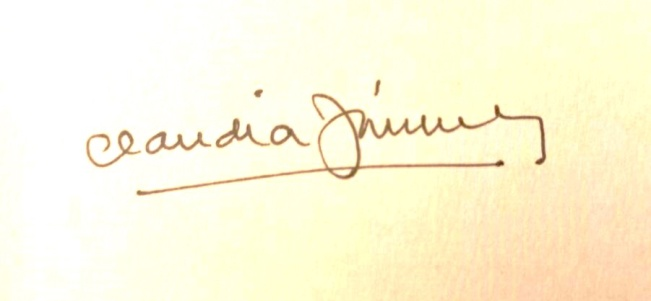 Claudia Jiménez